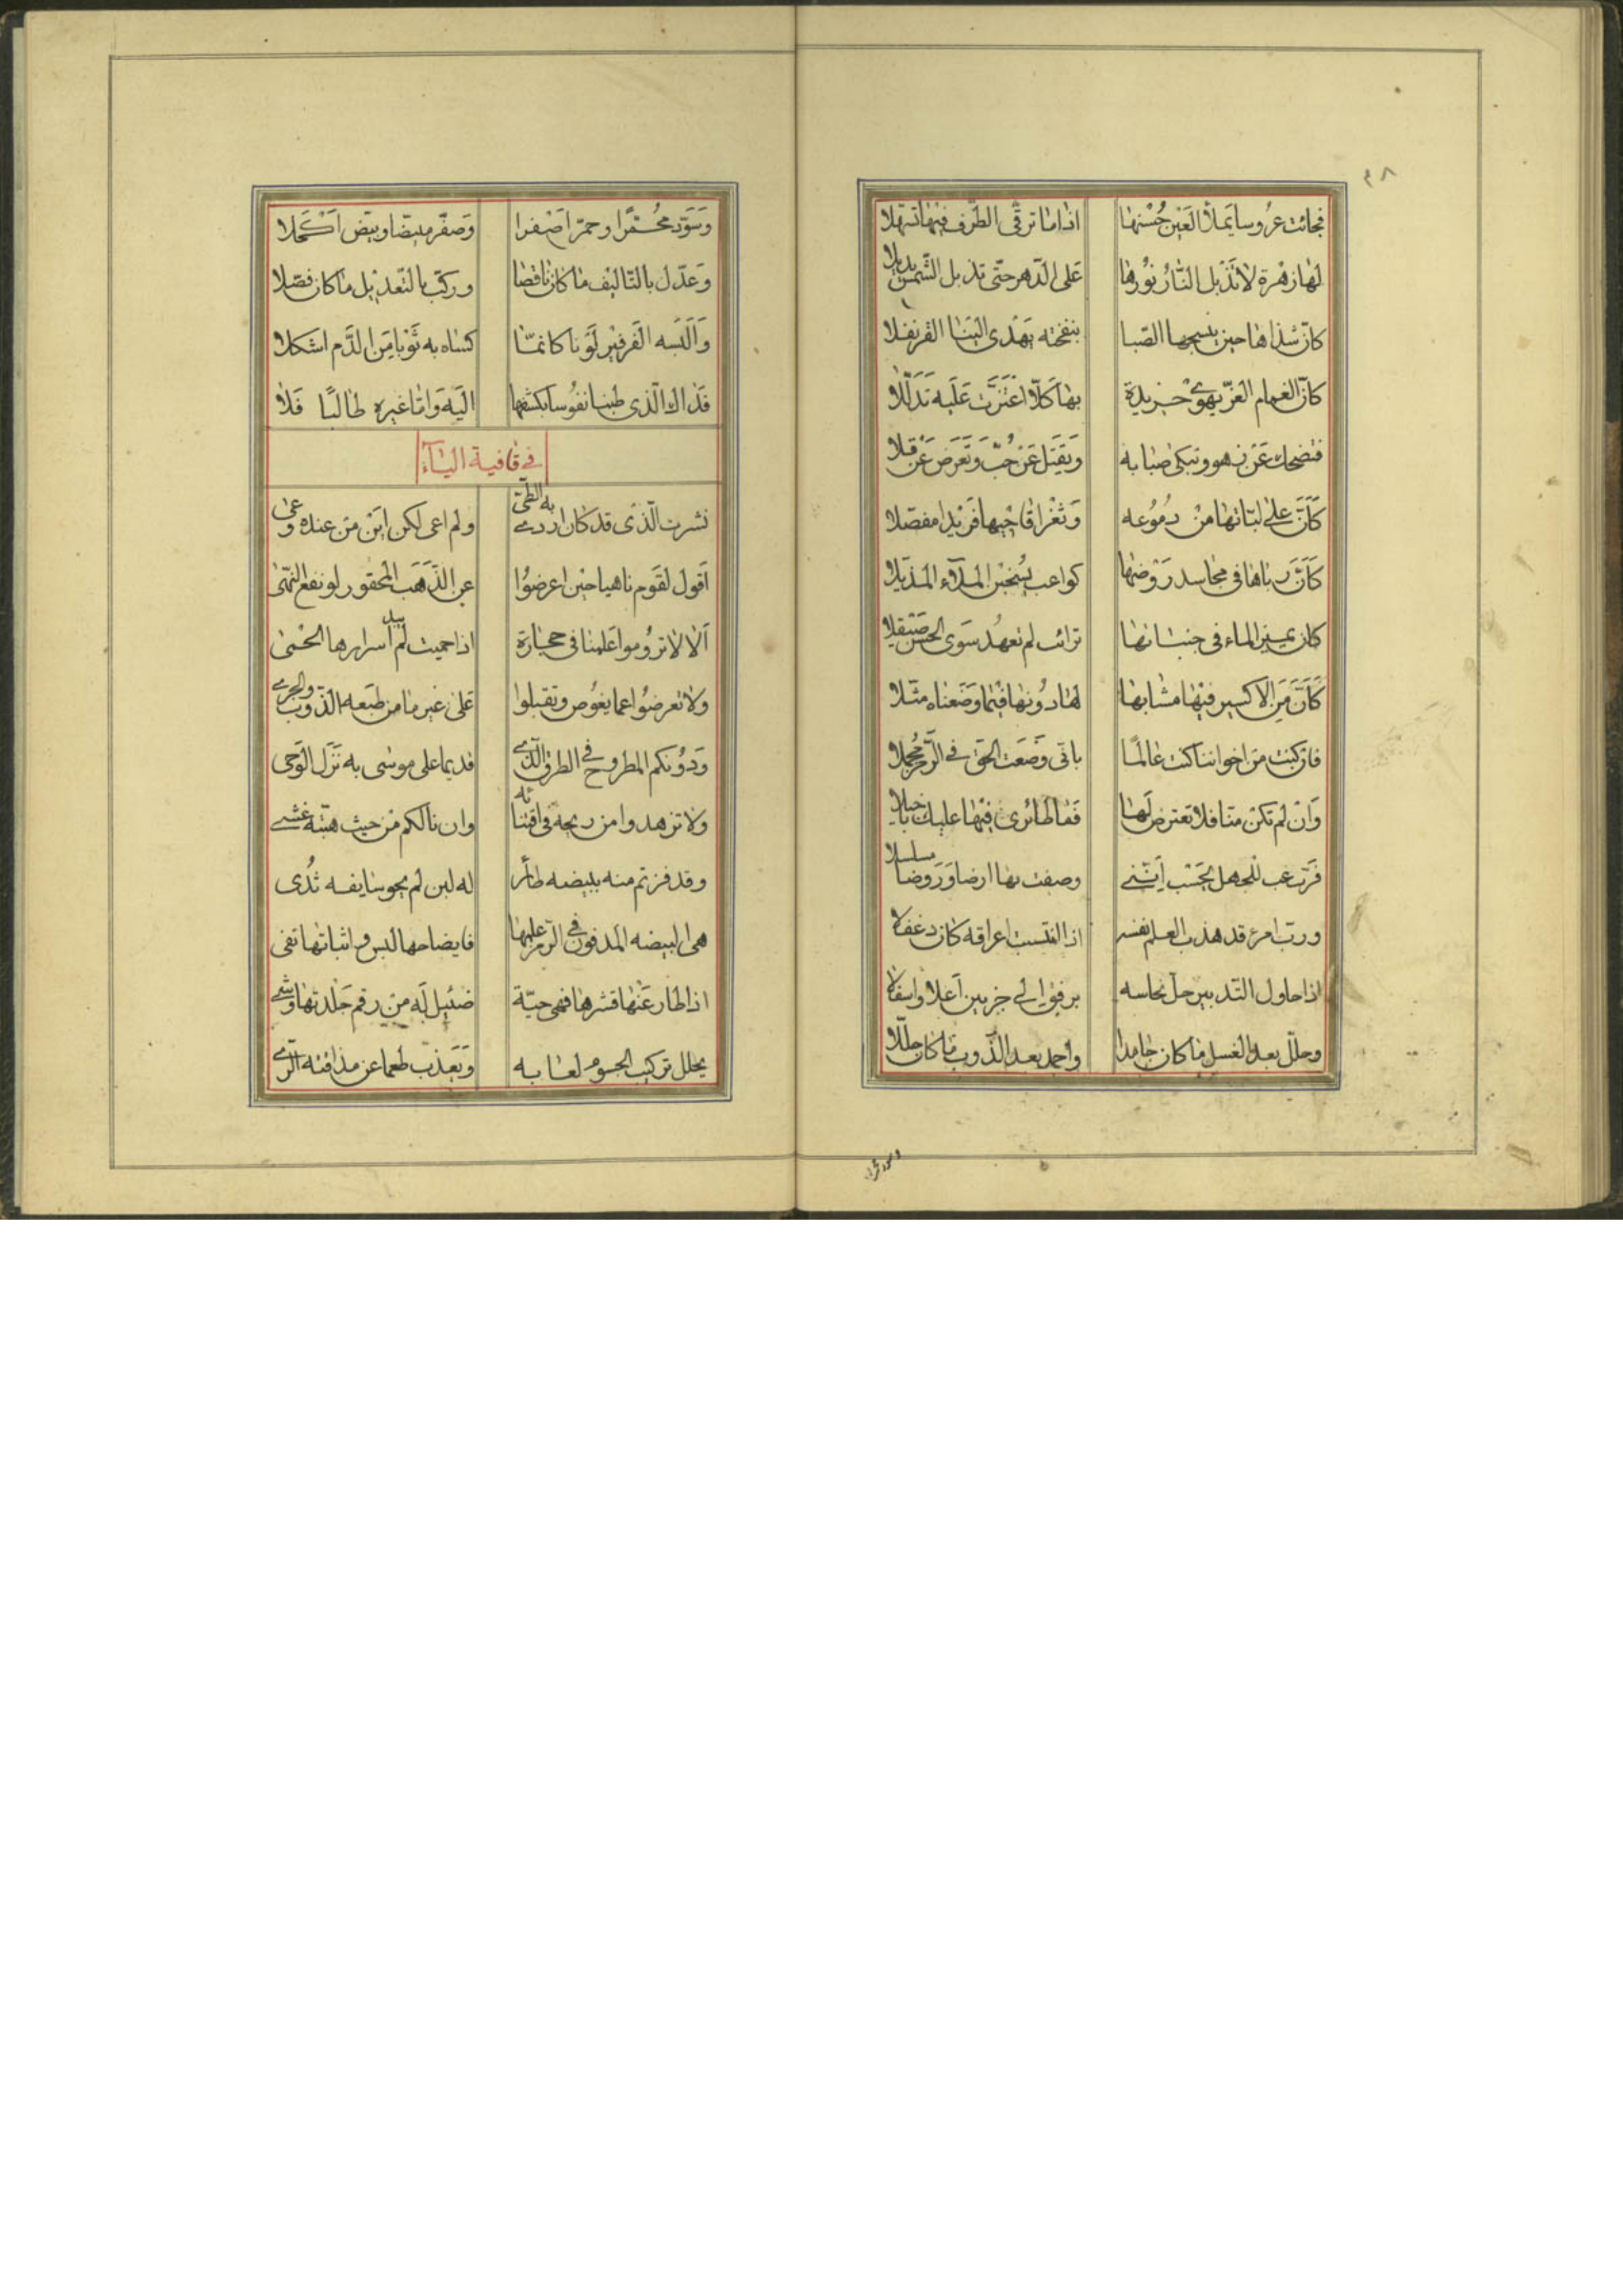 ٤٨
فجائت عروسا يملأ العين حسنها اذا ما ترقى الطرف فيها تهلا
لها زهرة لا تذبل النار نورها على الدهر حتى تذبل الشمس يذبلا
كان شذاها حين ينسجها الصبا بنفخته يهدى الينا القرنفلا
كان الغمام الغر يهوى خريدة بها كلا اعتزت عليه تدللا
فتضحك عن زهو وتبكى صبابه ويقبل عن حب وتعرض عن قلا
كأن على لباتها من دموعه وثغر اقاحيها فريدا مفصلا
كأن رباها فى مجاسد روضها كواعب يسحبن الملآء المذيلا
كان يمين الماء فى جنباتها ترائب لم تعهد سوى الحسن صيقلا
كأن من الاكسير فيها مشابها لها دونها فيما وضعناه مثلا
فان كنت من اخواننا كنت عالما بانى وضعت الحق فى الرمز مجملا
وان لم تكن منا فلا تعترض لها فما طائرى فيها عليك باخيلا
فرتعب للجهل يحسب اننى وصفت بها ارضا وروضا مسلسلا
ورب امرء قد هذب العلم نفسه اذا انتسبت اعراقه كان دغفلا
اذا حاول التدبير حل نحاسه برفق الى جزئين اعلا واسفلا
وحلل بعد الغسل ما كان جامدا واجمد بعد الذوب ما كان حللا
وسود محمرا وحمر اصفرا وصفر مبيضا وبيض اكحلا
وعدل بالتاليف ما كان ناقضا وركب بالتعديل ما كان فصلا
وألبسه الفرفير لونا كانما كساه به ثوبا من الدم اشكلا
فذاك الذى طبنا نفوسا بكشفها اليه واما غيره طالبا فلا
فى قافية الياء
نشرت الذى قد كان اردى به الطى ولم اعى لكن اين من عنده وعى
اقول لقوم ناهيا حين اعرضوا عن الذهب المحقور لو نفع النهى
ألا لا تروموا علمنا فى حجارة اذا حميت لم يبد اسرارها الحمى
ولا تعرضوا عما يغوص وتقبلوا على غير ما من طبعه الذوب والجرى
ودونكم المطروح فى الطرق الذى قديما على موسى به نزل الوحى
ولا تزهدوا من ريحه فى اقتنائه وان نالكم من حيث هبته غشى
وقد فزتم منه ببيضه طائر له لبن لم يحو سايفه ثدى
هى البيضه المدفون فى الرمز علمها فايضاحها لبس واثباتها نفى
اذا طار عنها قشرها فهى حية ضئيل له من رقم جلدتها وشى
يحلل تركيب الجسوم لعابه ويعذب طعما عن مذاقته الارى
وسود محمرا